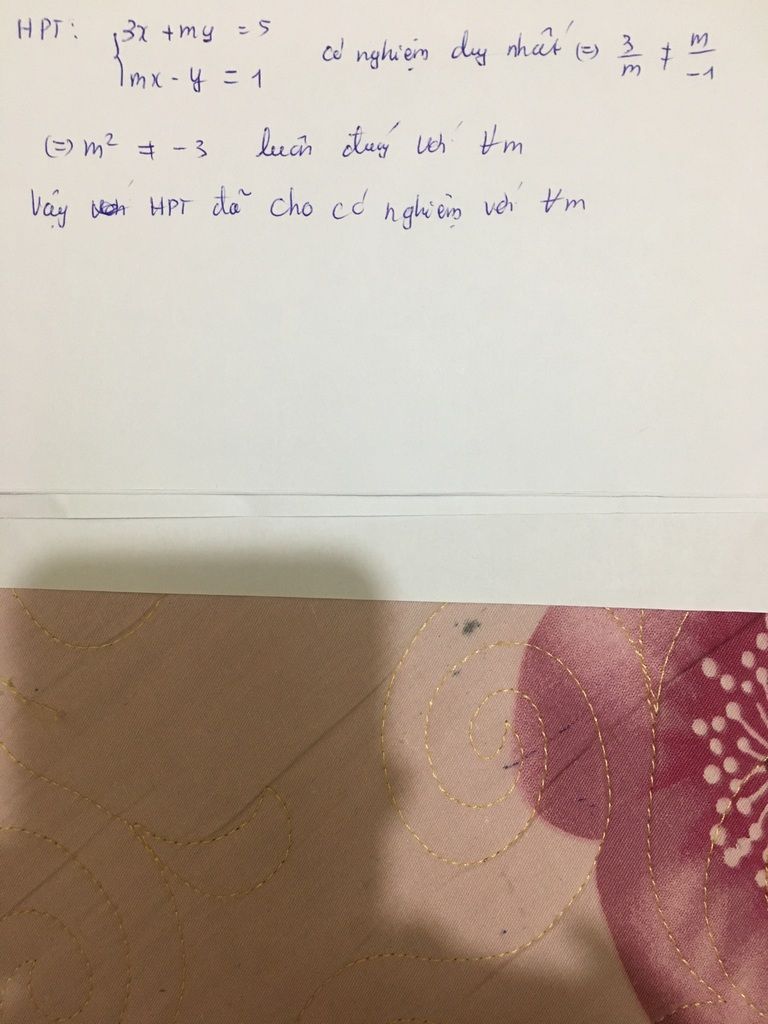 HPT: { 3x + my = 5
mx - y = 1 có nghiệm duy nhất (=) 3/m ≠ m/-1
(=) m² ≠ -3 luôn đúng với ∀m
Vậy HPT đã cho có nghiệm với ∀m